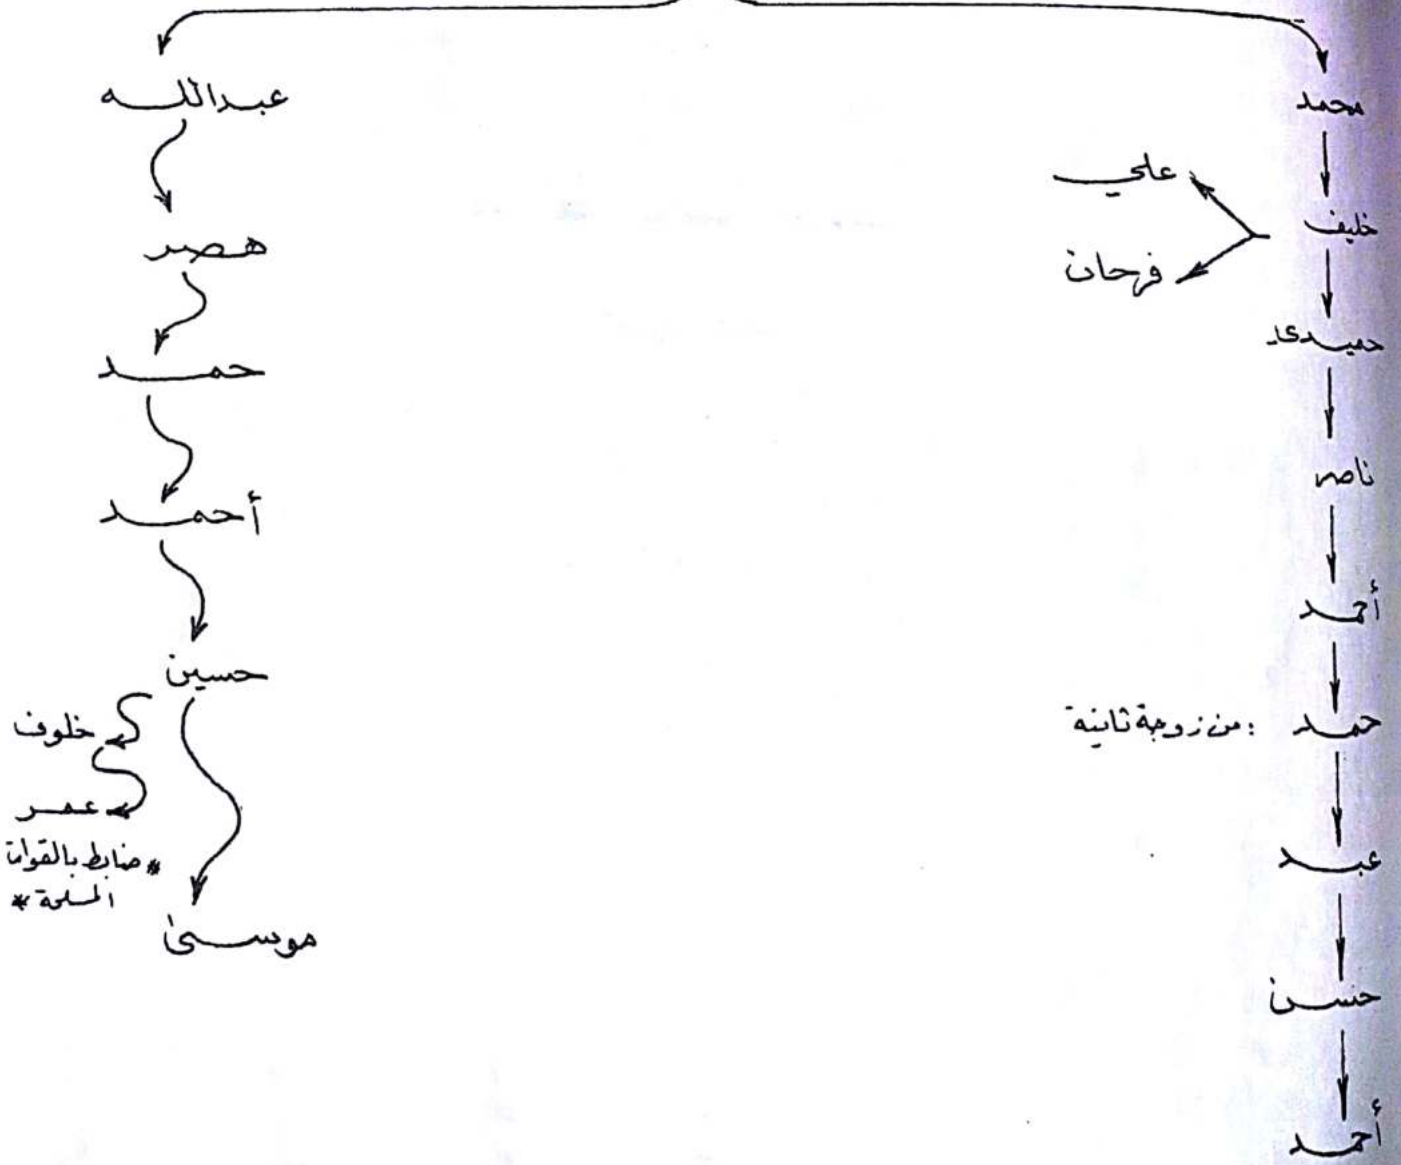 محمد
خليف
علي
فرحان
حميدي
ناصر
أحمد
حمد : من زوجة ثانية
عبد
حسن
أحمد
عبدالله
هصر
حمد
أحمد
حسين
خلوف
عمر
* ضابط بالقوات
المسلحة *
موسى